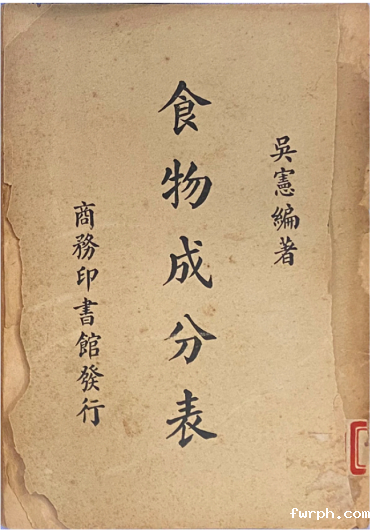 吳憲編著
食物成分表
商務印書館發行
fwrph.com